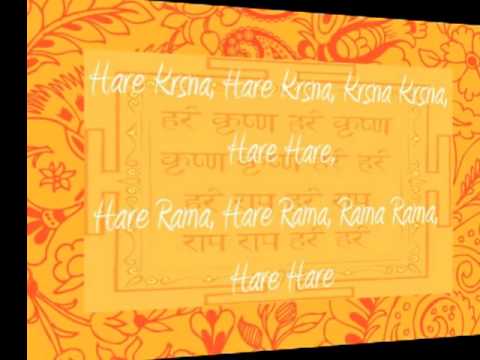 Hare Krsna, Hare Krsna, Krsna Krsna,
हरे कृष्ण हरे कृष्ण
Hare Hare,
कृष्ण कृष्ण हरे हरे
हरे राम हरे राम
Hare Rama, Hare Rama, Rama Rama,
राम राम हरे हरे
Hare Hare